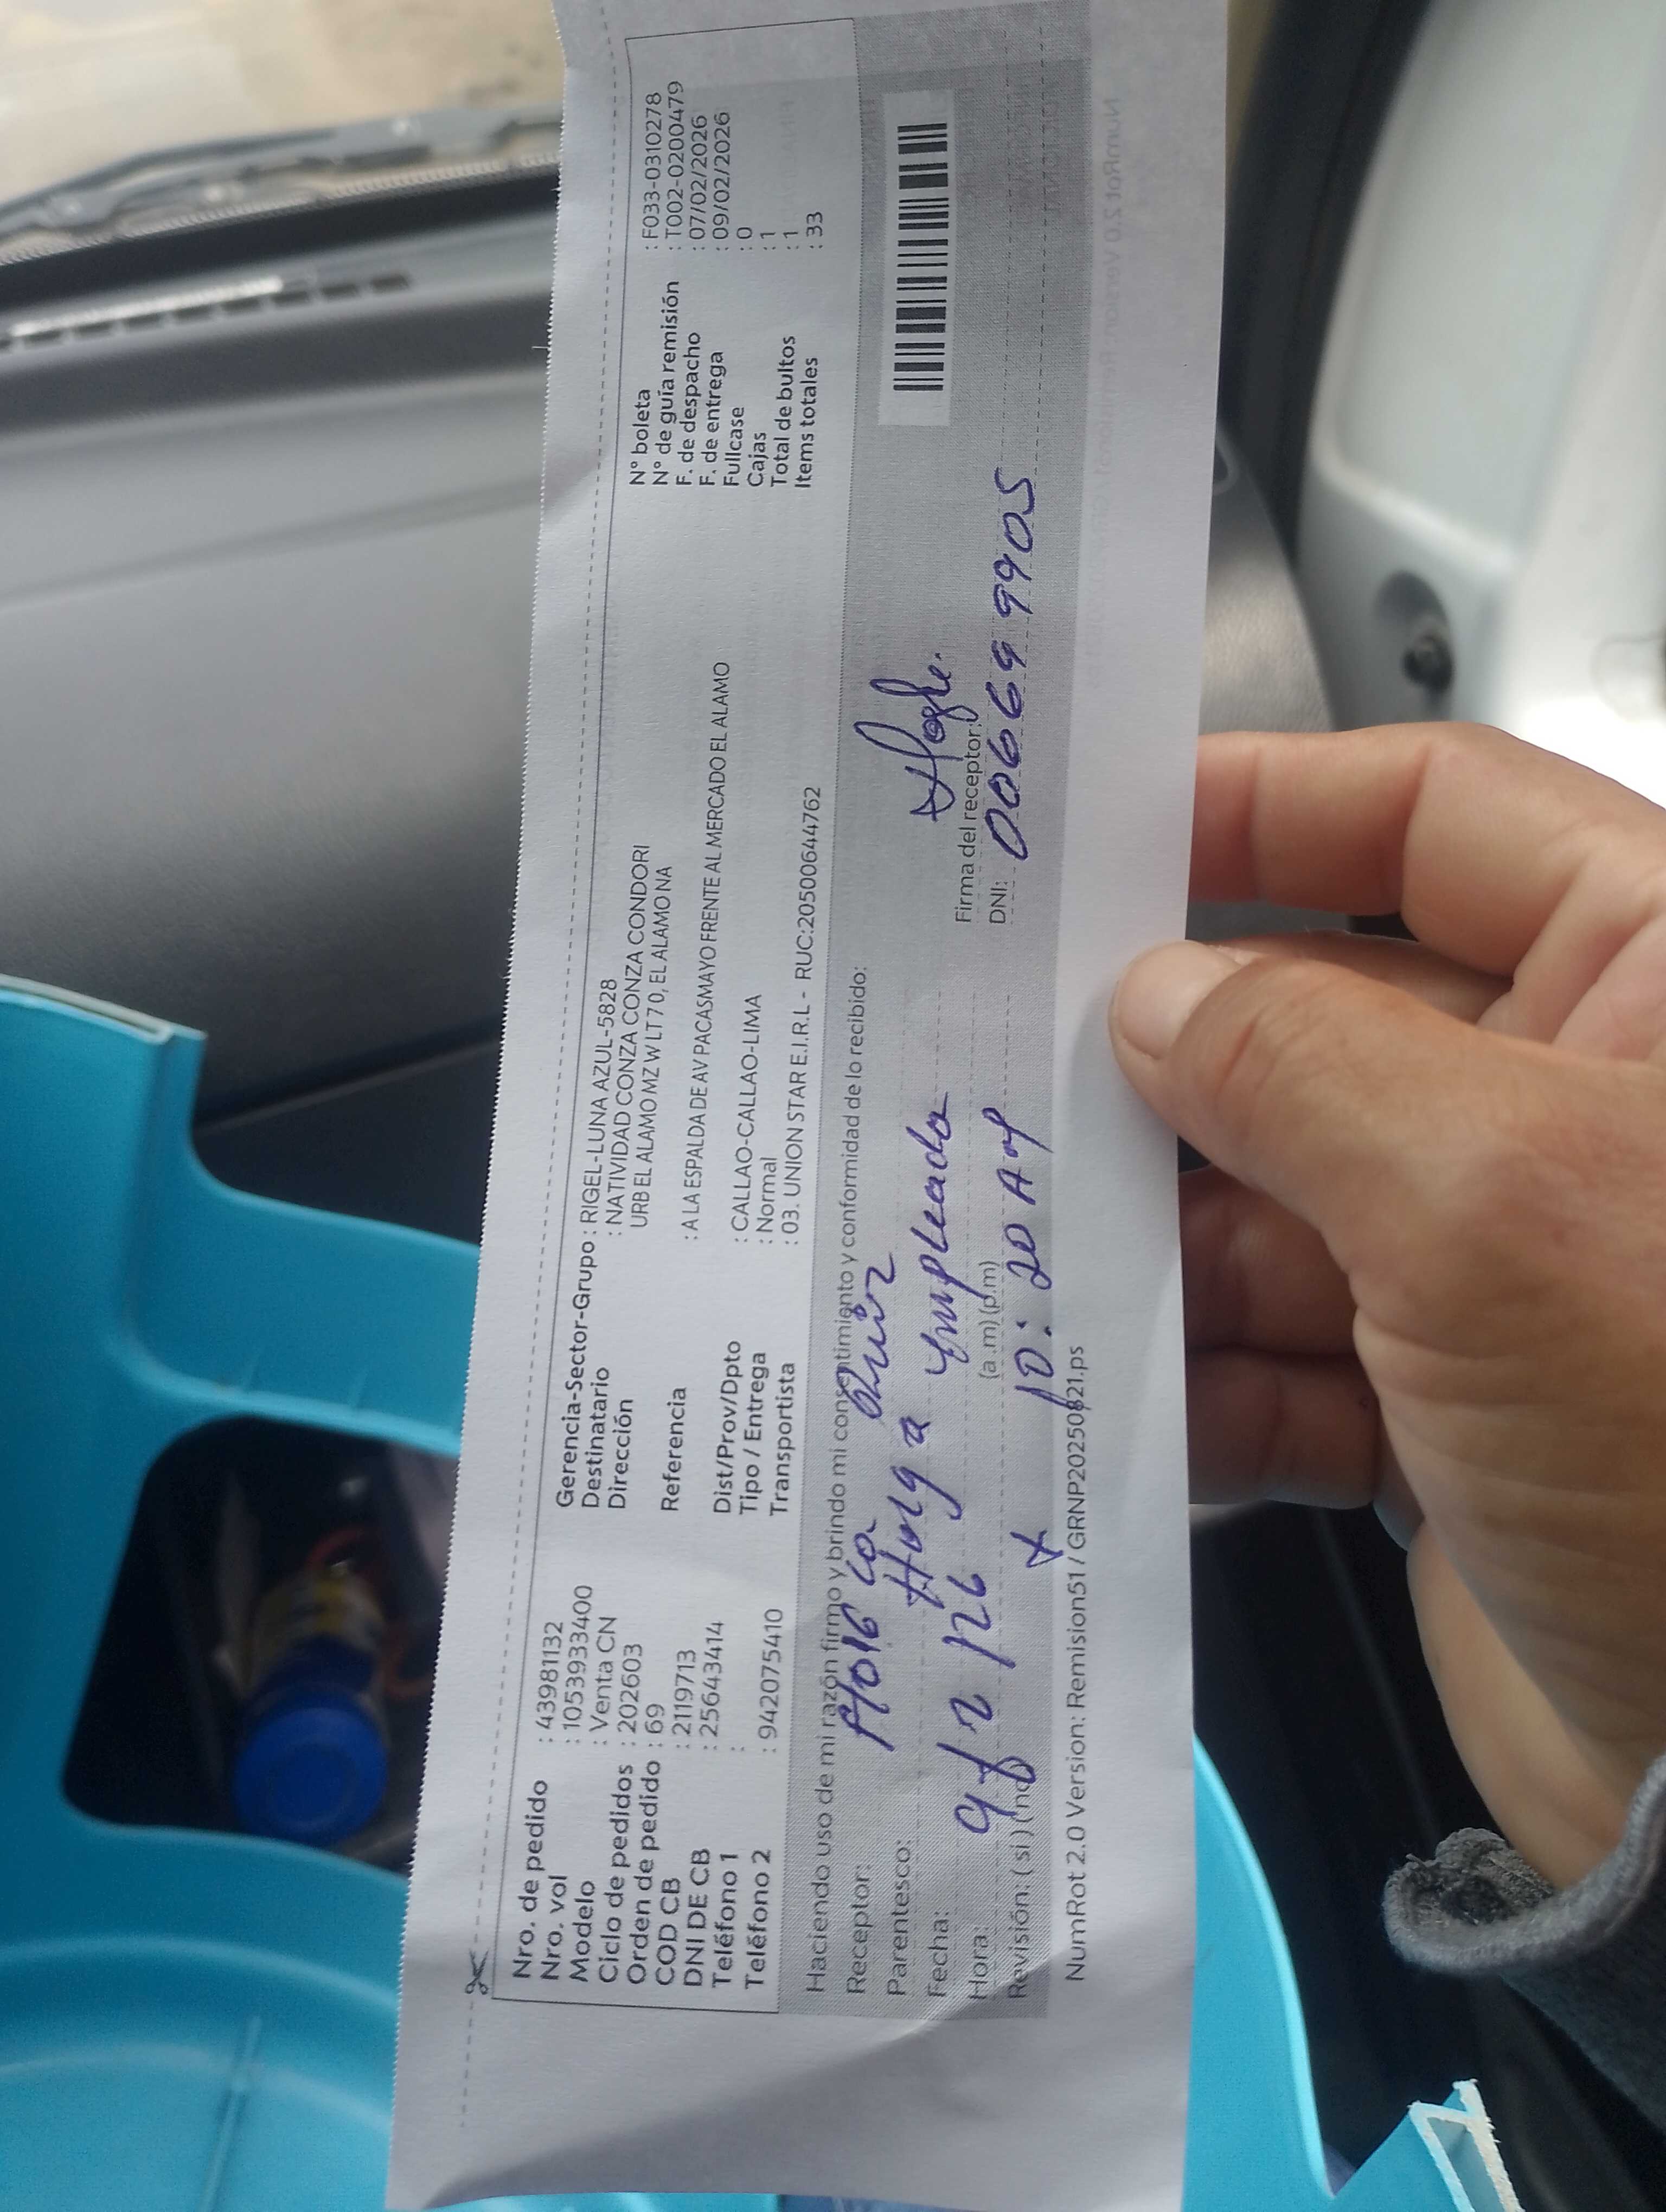 Nro. de pedido : 43981132
Nro. vol : 105393933400
Modelo : Venta CN
Ciclo de pedidos : 202603
Orden de pedido : 69
COD CB : 2119713
DNI DE CB : 25643414
Teléfono 1 :
Teléfono 2 : 942075410
Gerencia-Sector-Grupo : RIGEL-LUNA AZUL-5828
Destinatario : NATIVIDAD CONZA CONZA CONZA CONDORI
Dirección URB EL ALAMO MZ W LT 7 0, EL ALAMO NA
Referencia : A LA ESPALDA DE AV PACASMAYO FRENTE AL MERCADO EL ALAMO
Dist/Prov/Dpto : CALLAO-CALLAO-LIMA
Tipo / Entrega : Normal
Transportista : 03. UNION STAR E.I.R.L - RUC:20500644762
N° boleta : F033-0310278
N° de guía remisión : T002-0200479
F. de despacho : 07/02/2026
F. de entrega : 09/02/2026
Fullcase : 0
Cajas : 1
Total de bultos : 1
Items totales : 33
Haciendo uso de mi razón firmo y brindo mi consentimiento y conformidad de lo recibido:
Receptor:
Parentesco: Empleada
Fecha: 9/2/26
Hora: 10:20 AM (a.m) (p.m)
Revisión: ( si ) ( no
Firma del receptor:
DNI: 006699905
NumRot 2.0 Version: Remision51 / GRNP20250821.ps